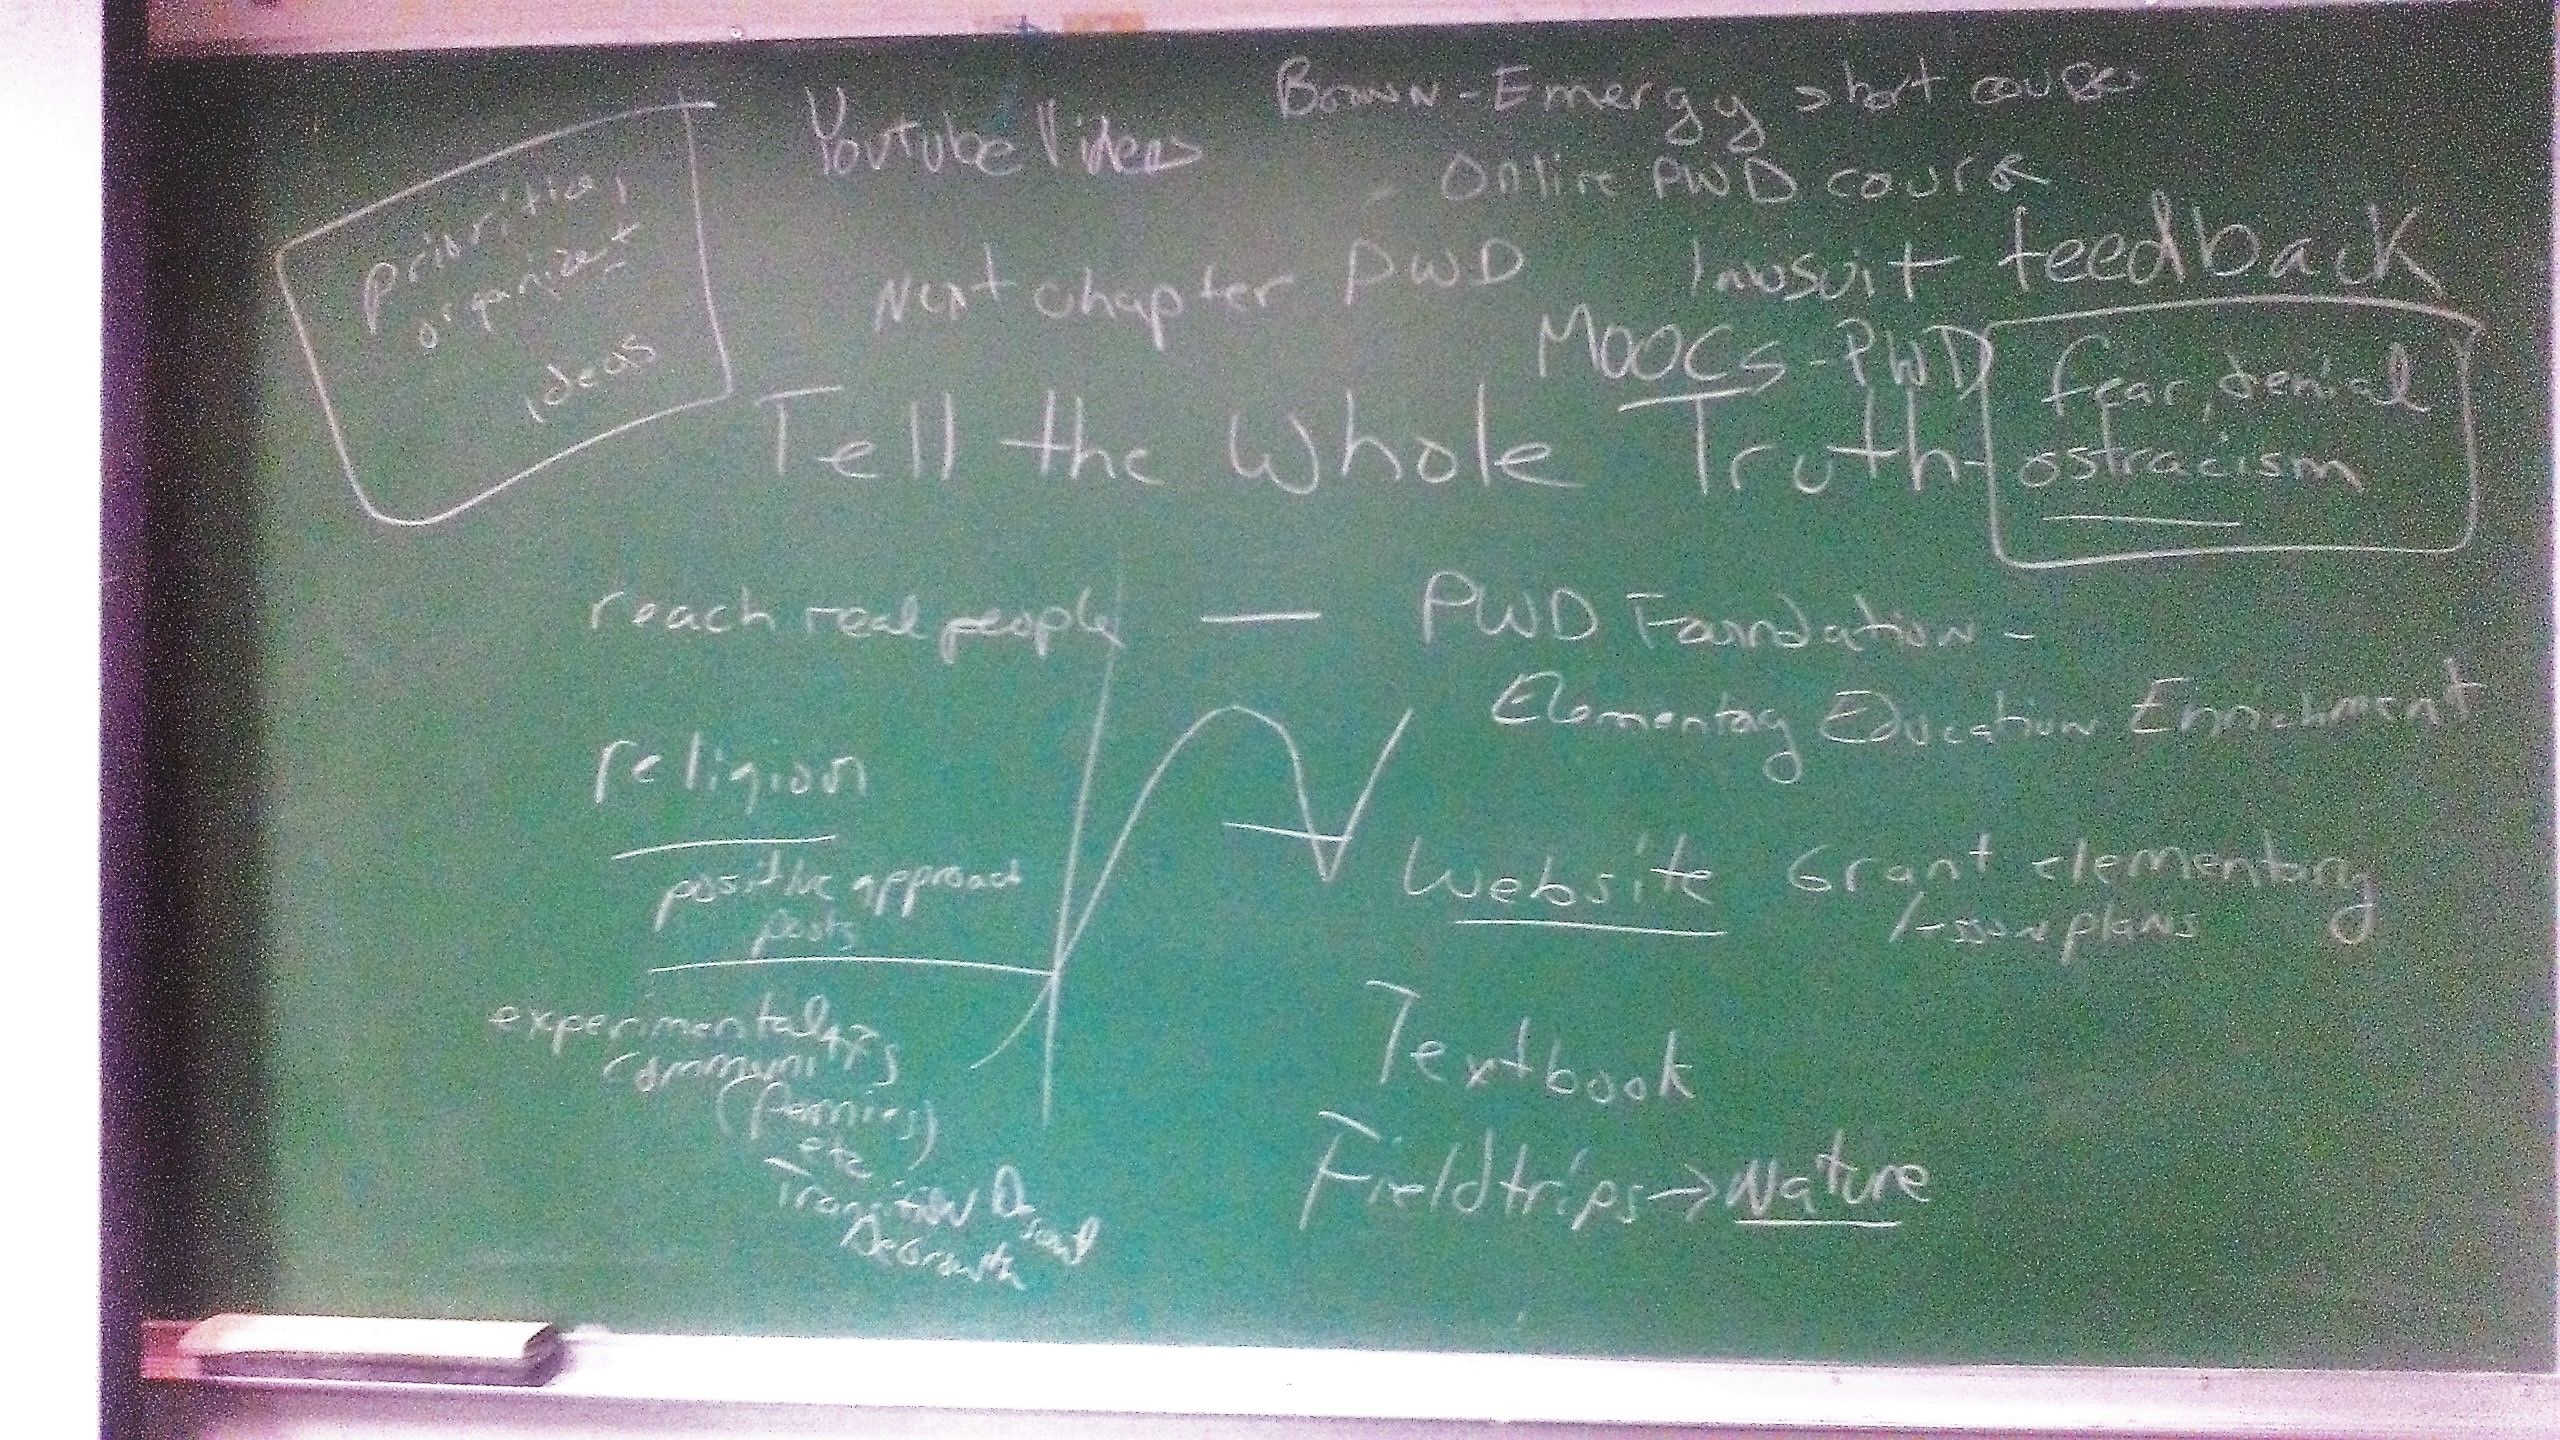 Brown - Emergy short course
Youtube Videos
Online PWD course
priorities,
organize
ideas
Next chapter PWD
lawsuit feedback
MOOCs - PWD
Tell the Whole Truth -
fear, denial
ostracism
reach real people — PWD Foundation -
Elementary Education Enrichment
religion
positive approach
posts
Website Grant elementary
lesson plans
experimental
community
etc
Transition Descent
DeGrowth
Textbook
Fieldtrips → Nature